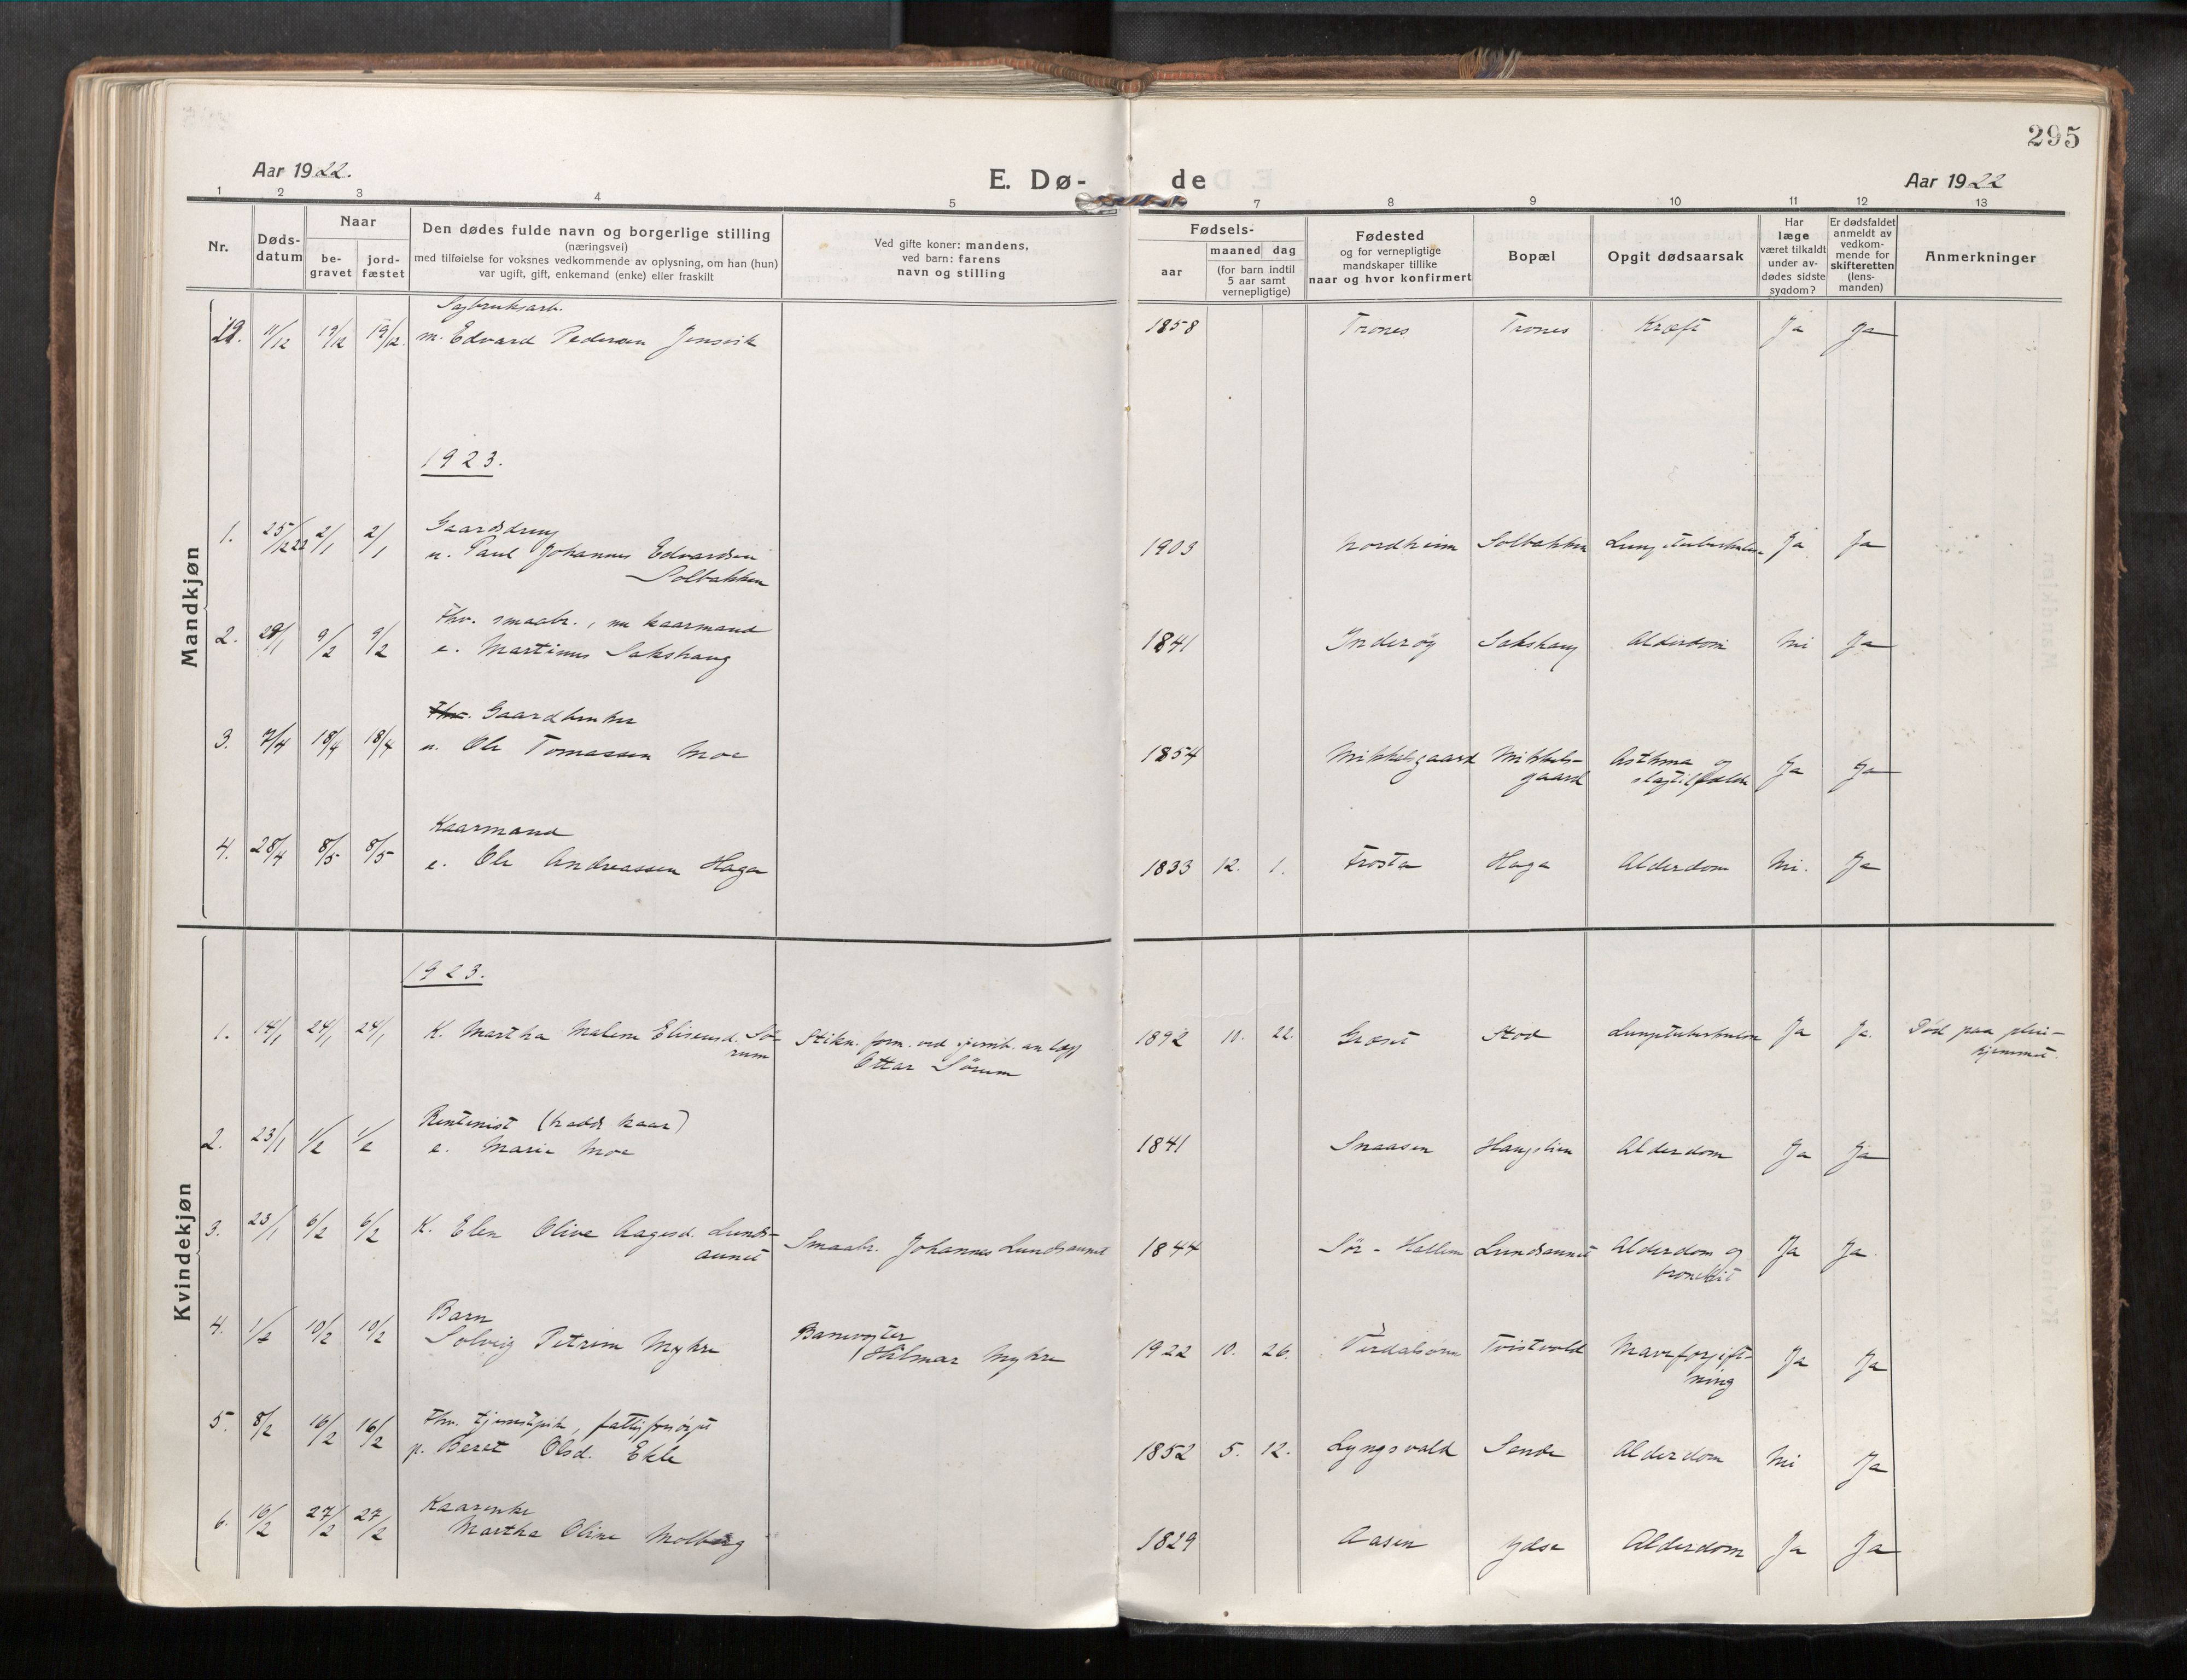 295
Aar 1922.
E. Dø- de
Aar 1922
1 2 3 4 5 7 8 9 10 11 12 13
Nr.
Døds-
datum
Naar
be-
gravet
jord-
fæstet
Den dødes fulde navn og borgerlige stilling
(næringsvei)
med tilføielse for voksnes vedkommende av oplysning, om han (hun)
var ugift, gift, enkemand (enke) eller fraskilt
Ved gifte koner: mandens,
ved barn: farens
navn og stilling
Fødsels-
aar
maaned dag
(for barn indtil
5 aar samt
vernepligtige)
Fødested
og for vernepligtige
mandskaper tillike
naar og hvor konfirmert
Bopæl
Opgit dødsaarsak
Har
læge
været tilkaldt
under av-
dødes sidste
sygdom?
Er dødsfaldet
anmeldt av
vedkom-
mende for
skifteretten
(lens-
manden)
Anmerkninger
Mandkjøn
Sagbruksarb.
19. 11/12 19/12 19/12. m. Edvard Pedersen Jensvik 1858 Trones Trones Kræft Ja Ja
1923.
Gaardsdreng
1. 25/12 22 2/1 2/1 u. Paul Johannes Edvardsen 1903 Nordheim Solbakken Lungetuberkulose Ja Ja
Solbakken
Fhv. smaabr., nu kaarmand
2. 29/1 9/2 9/2 e. Martinus Sakshaug 1841 Inderøy Sakshaug Alderdom Nei Ja
Fhv. Gaardbruker
3. 7/4 18/4 18/4 u. Ole Tomassen Moe 1854 Mikkelsgaard Mikkels- Asthma og Ja Ja
gaard slagtilfælde
Kaarmand
4. 28/4 8/5 8/5 e. Ole Andreassen Haga 1833 12. 1. Frosta Haga Alderdom Nei. Ja
Kvindekjøn
1923.
1. 14/1 24/1 24/1 K. Martha Malene Eliseusd. Sø- Stikn. form. ved jernb. anlegg 1892 10. 22. Græset Stod Lungetuberkulose Ja Ja. Død paa pleie-
rum Ottar Sörum hjemmet.
Rentenist (hadde kaar)
2. 23/1 1/2 1/2 e. Marie Moe 1841 Snaasen Haugslien Alderdom Ja Ja
3. 23/1 6/2 6/2 K. Elen Olive Aagesd. Lunds- Smaabr. Johannes Lundsaunet 1844 Sør-Hallem Lundsaunet Alderdom og Ja Ja
aunet bronkit
Barn Banevogter
4. 1/2 10/2 10/2 Solveig Petrine Myhre Hilmar Myhre 1922 10. 26. Verdalsøren Tvistvold Maveforgift- Ja Ja
ning
Fhv. tjenestepike, fattigforsørget
5. 8/2 16/2 16/2 p. Beret Olsd. Ekle 1852 5. 12. Lyngsvald Sende Alderdom Nei Ja
Kaarenke
6. 19/2 27/2 27/2 Martha Oline Molberg 1829 Aasen Ydse Alderdom Ja Ja